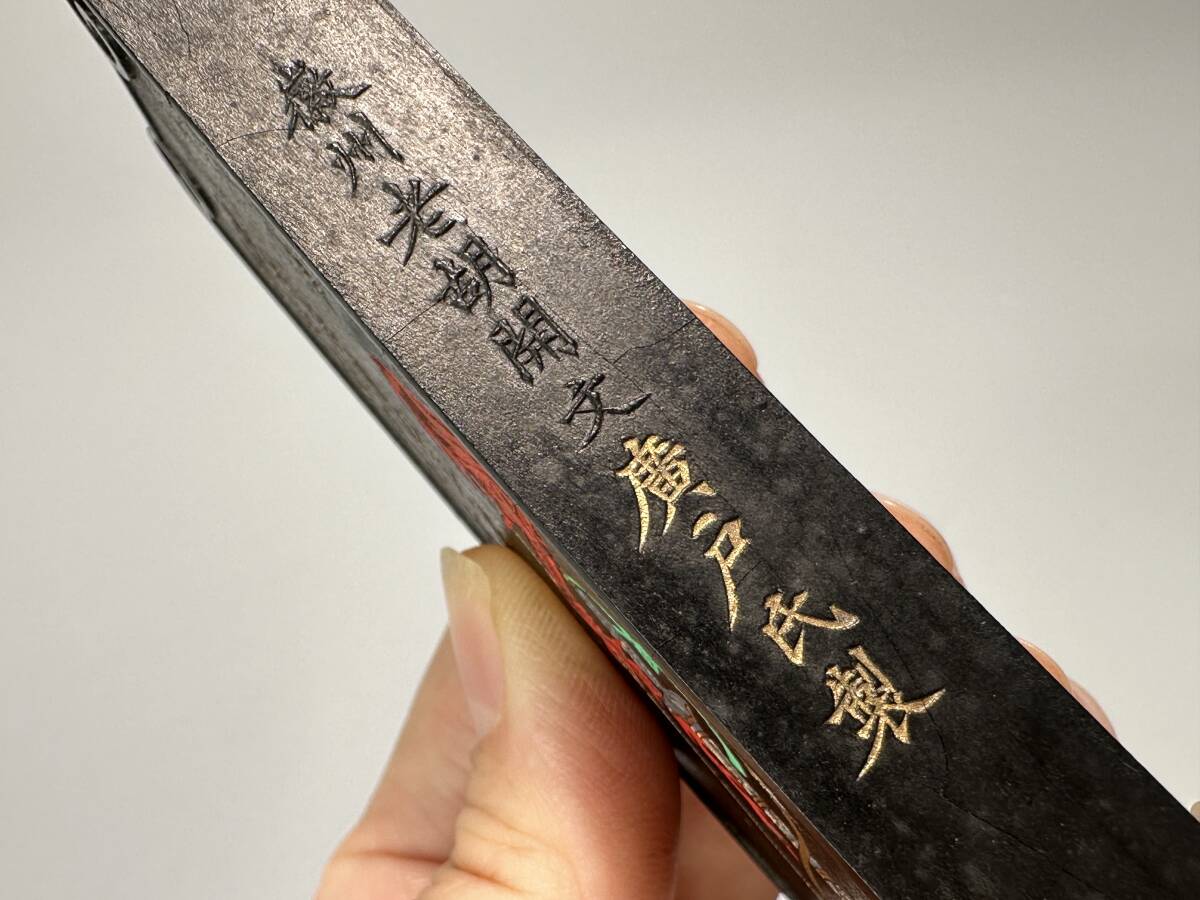 徽州老胡開文廣戸氏製